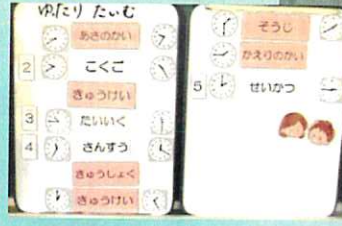 ゆったり たいむ
あさのかい
2 こくご
きゅうけい
3 たいいく
4 さんすう
きゅうしょく
きゅうけい
そうじ
かえりのかい
5 せいかつ